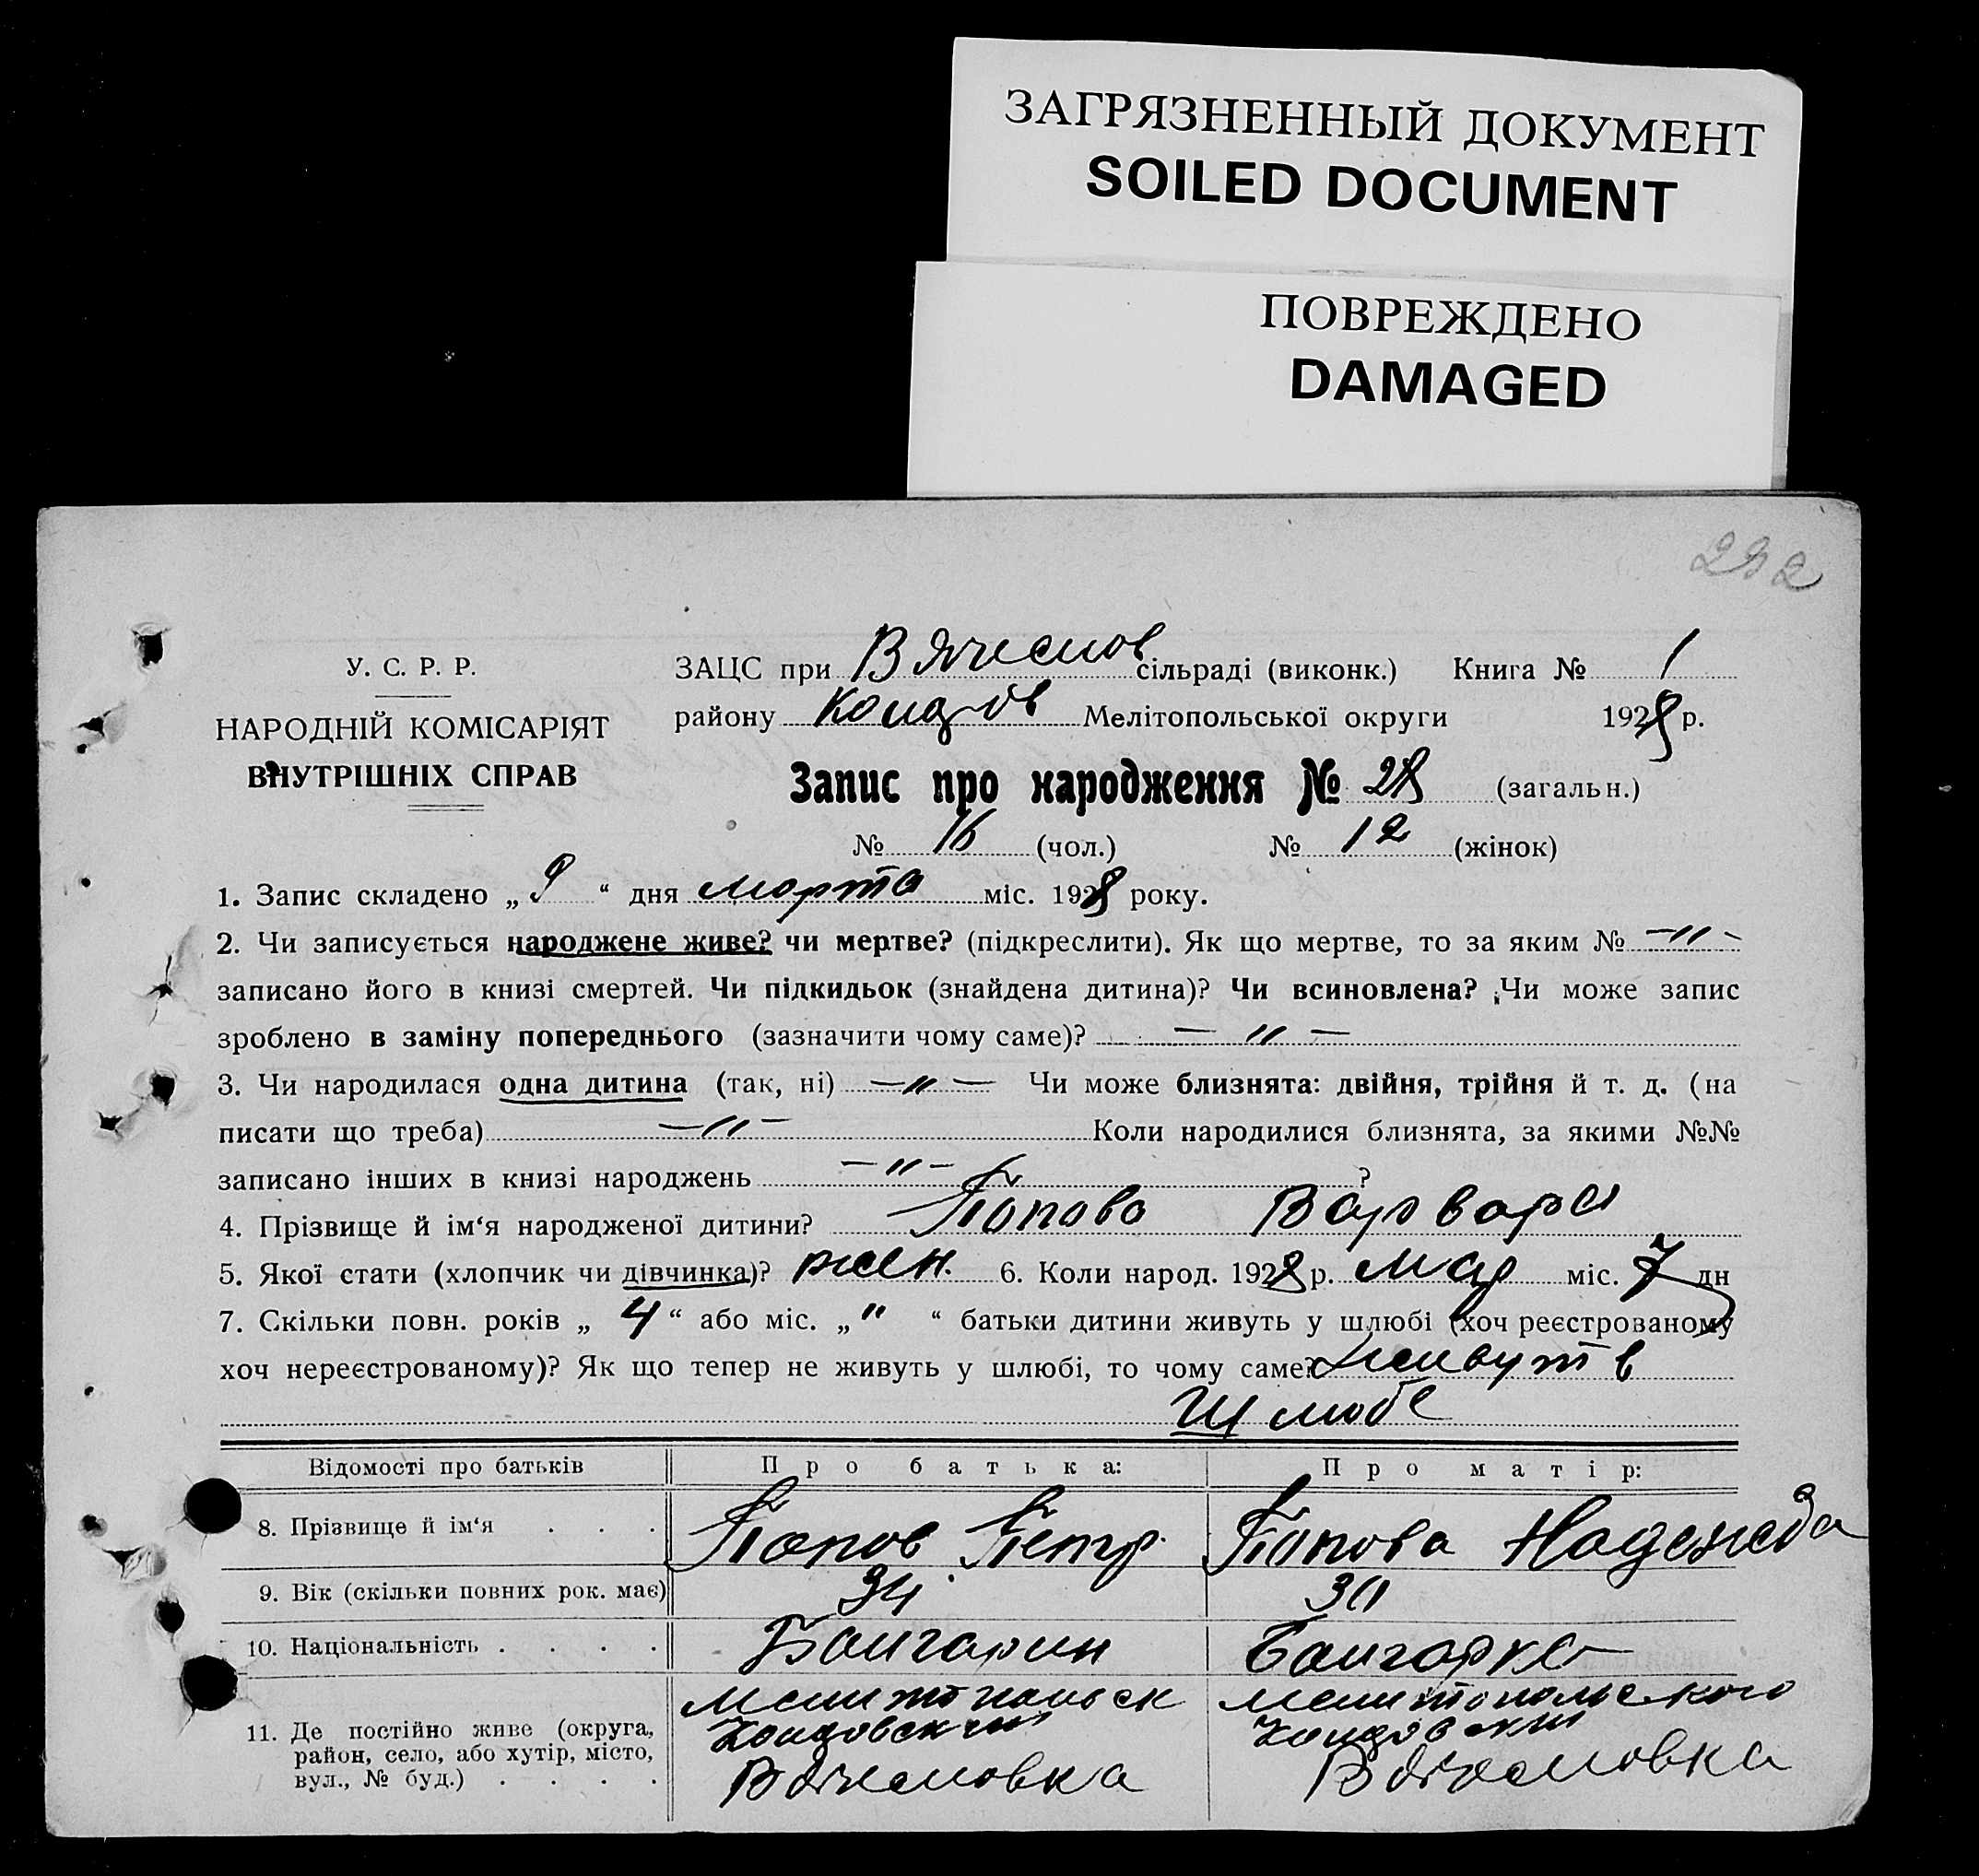 ЗАГРЯЗНЕННЫЙ ДОКУМЕНТ
SOILED DOCUMENT
ПОВРЕЖДЕНО
DAMAGED
232
У. С. Р. Р.
НАРОДНІЙ КОМІСАРІЯТ
ВНУТРІШНІХ СПРАВ
ЗАЦС при Вячеслов сільраді (виконк.) Книга № 1
району Колар-ов Мелітопольської округи 1928 р.
Запис про народження № 28 (загальн.)
№ 16 (чол.) № 12 (жінок)
1. Запис складено „ 9 “ дня Марта міс. 1928 року.
2. Чи записується народжене живе? чи мертве? (підкреслити). Як що мертве, то за яким № —"—
записано його в книзі смертей. Чи підкидьок (знайдена дитина)? Чи всиновлена? Чи може запис
зроблено в заміну попереднього (зазначити чому саме)? — " —
3. Чи народилася одна дитина (так, ні) — " — Чи може близнята: двійня, трійня й т. д. (на
писати що треба) — " — Коли народилися близнята, за якими №№
записано інших в книзі народжень — " — ?
4. Прізвище й ім‘я народженої дитини? Попова Варвара
5. Якої стати (хлопчик чи дівчинка)? жен. 6. Коли народ. 1928 р. Мар міс. 7 дн
7. Скільки повн. років „ 4 “ або міс. „ " “ батьки дитини живуть у шлюбі (хоч реєстрованому
хоч нереєстрованому)? Як що тепер не живуть у шлюбі, то чому саме? живут в
Шлюбе
Відомості про батьків Про батька: Про матір:
8. Прізвище й ім‘я . . . Попов Петр. Попова Надежда
9. Вік (скільки повних рок. має) 34 30
10. Національність . . . . Болгарин Болгарка
11. Де постійно живе (округа, район, село, або хутір, місто, вул., № буд.) . . . .
Мелитопольск Мелитопольского
Вячесловка Вячесловка